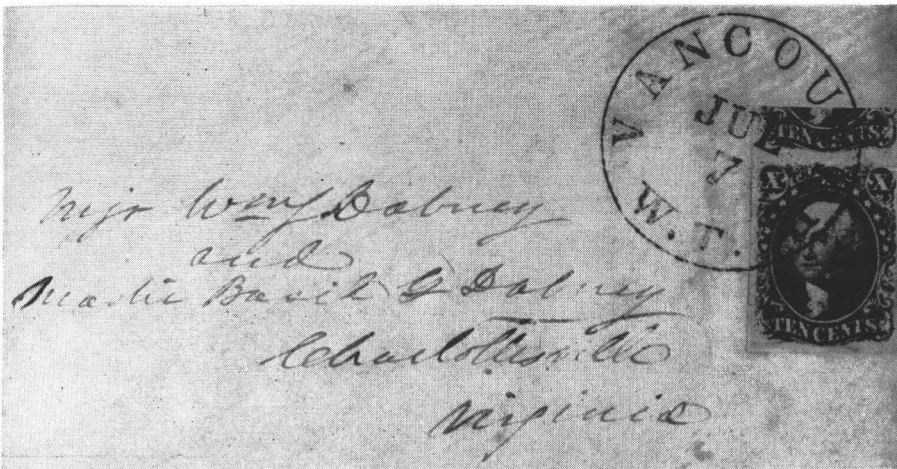 VANCOU
JUL
7
W.T.
TEN CENTS
X X
TEN CENTS
Wm Dabney
and
Basil G Dabney
Charlottesville
Virginia